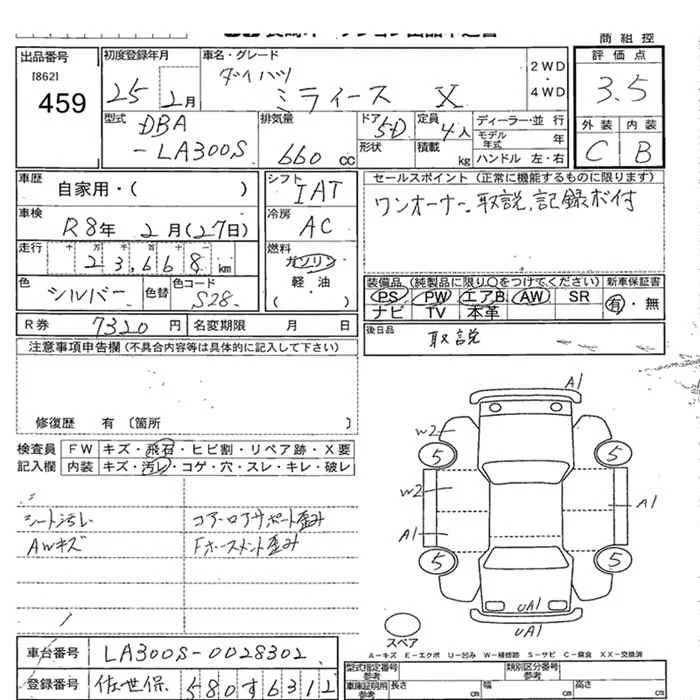 商 組 控
出品番号
[862]
459
初度登録年月
25年 2月
車名・グレード
ダイハツ
ミライース X
2WD
・
4WD
評 価 点
3.5
外 装 内 装
C B
型式
DBA
-LA300S
排気量
660 cc
ドア 5D
形状
定員 4人
積載 kg
ディーラー・並 行
モデル年式 年
ハンドル 左・右
車歴
自家用・( )
車検
R8年 2月(27日)
走行
十 万 千 百 十 一
23,668 km
色
シルバー
色替
色コード
S28
シフト
IAT
冷房
AC
燃料
ガソリン
軽・油
( )
セールスポイント (正常に機能するものに限ります)
ワンオーナー、取説、記録ボ付
装備品 (純製品に限り○をつけてください)
PS PW エアB AW SR
ナビ TV 本革
新車保証書
有・無
R券 7320 円
名変期限 月 日
後日品
取説
注意事項申告欄 (不具合内容等は具体的に記入して下さい)
修復歴 有 〔箇所 〕
検査員
記入欄
FW キズ・飛石・ヒビ割・リペア跡・X要
内装 キズ・汚レ・コゲ・穴・スレ・キレ・破レ
シート汚レ
AWキズ
コアーロアサポート歪み
Fホースメント歪み
A1
W2
5
5
W2
A1
A1
5
5
UA1
UA1
スペア
A－キズ E－エクボ U－凹み W－補修跡 S－サビ C－腐食 XX－交換済
車台番号
LA300S-0028302
登録番号
佐世保 580す6312
型式指定番号
参考
類別区分番号
参考
車庫証明用
参考
長さ cm
幅 cm
高さ cm